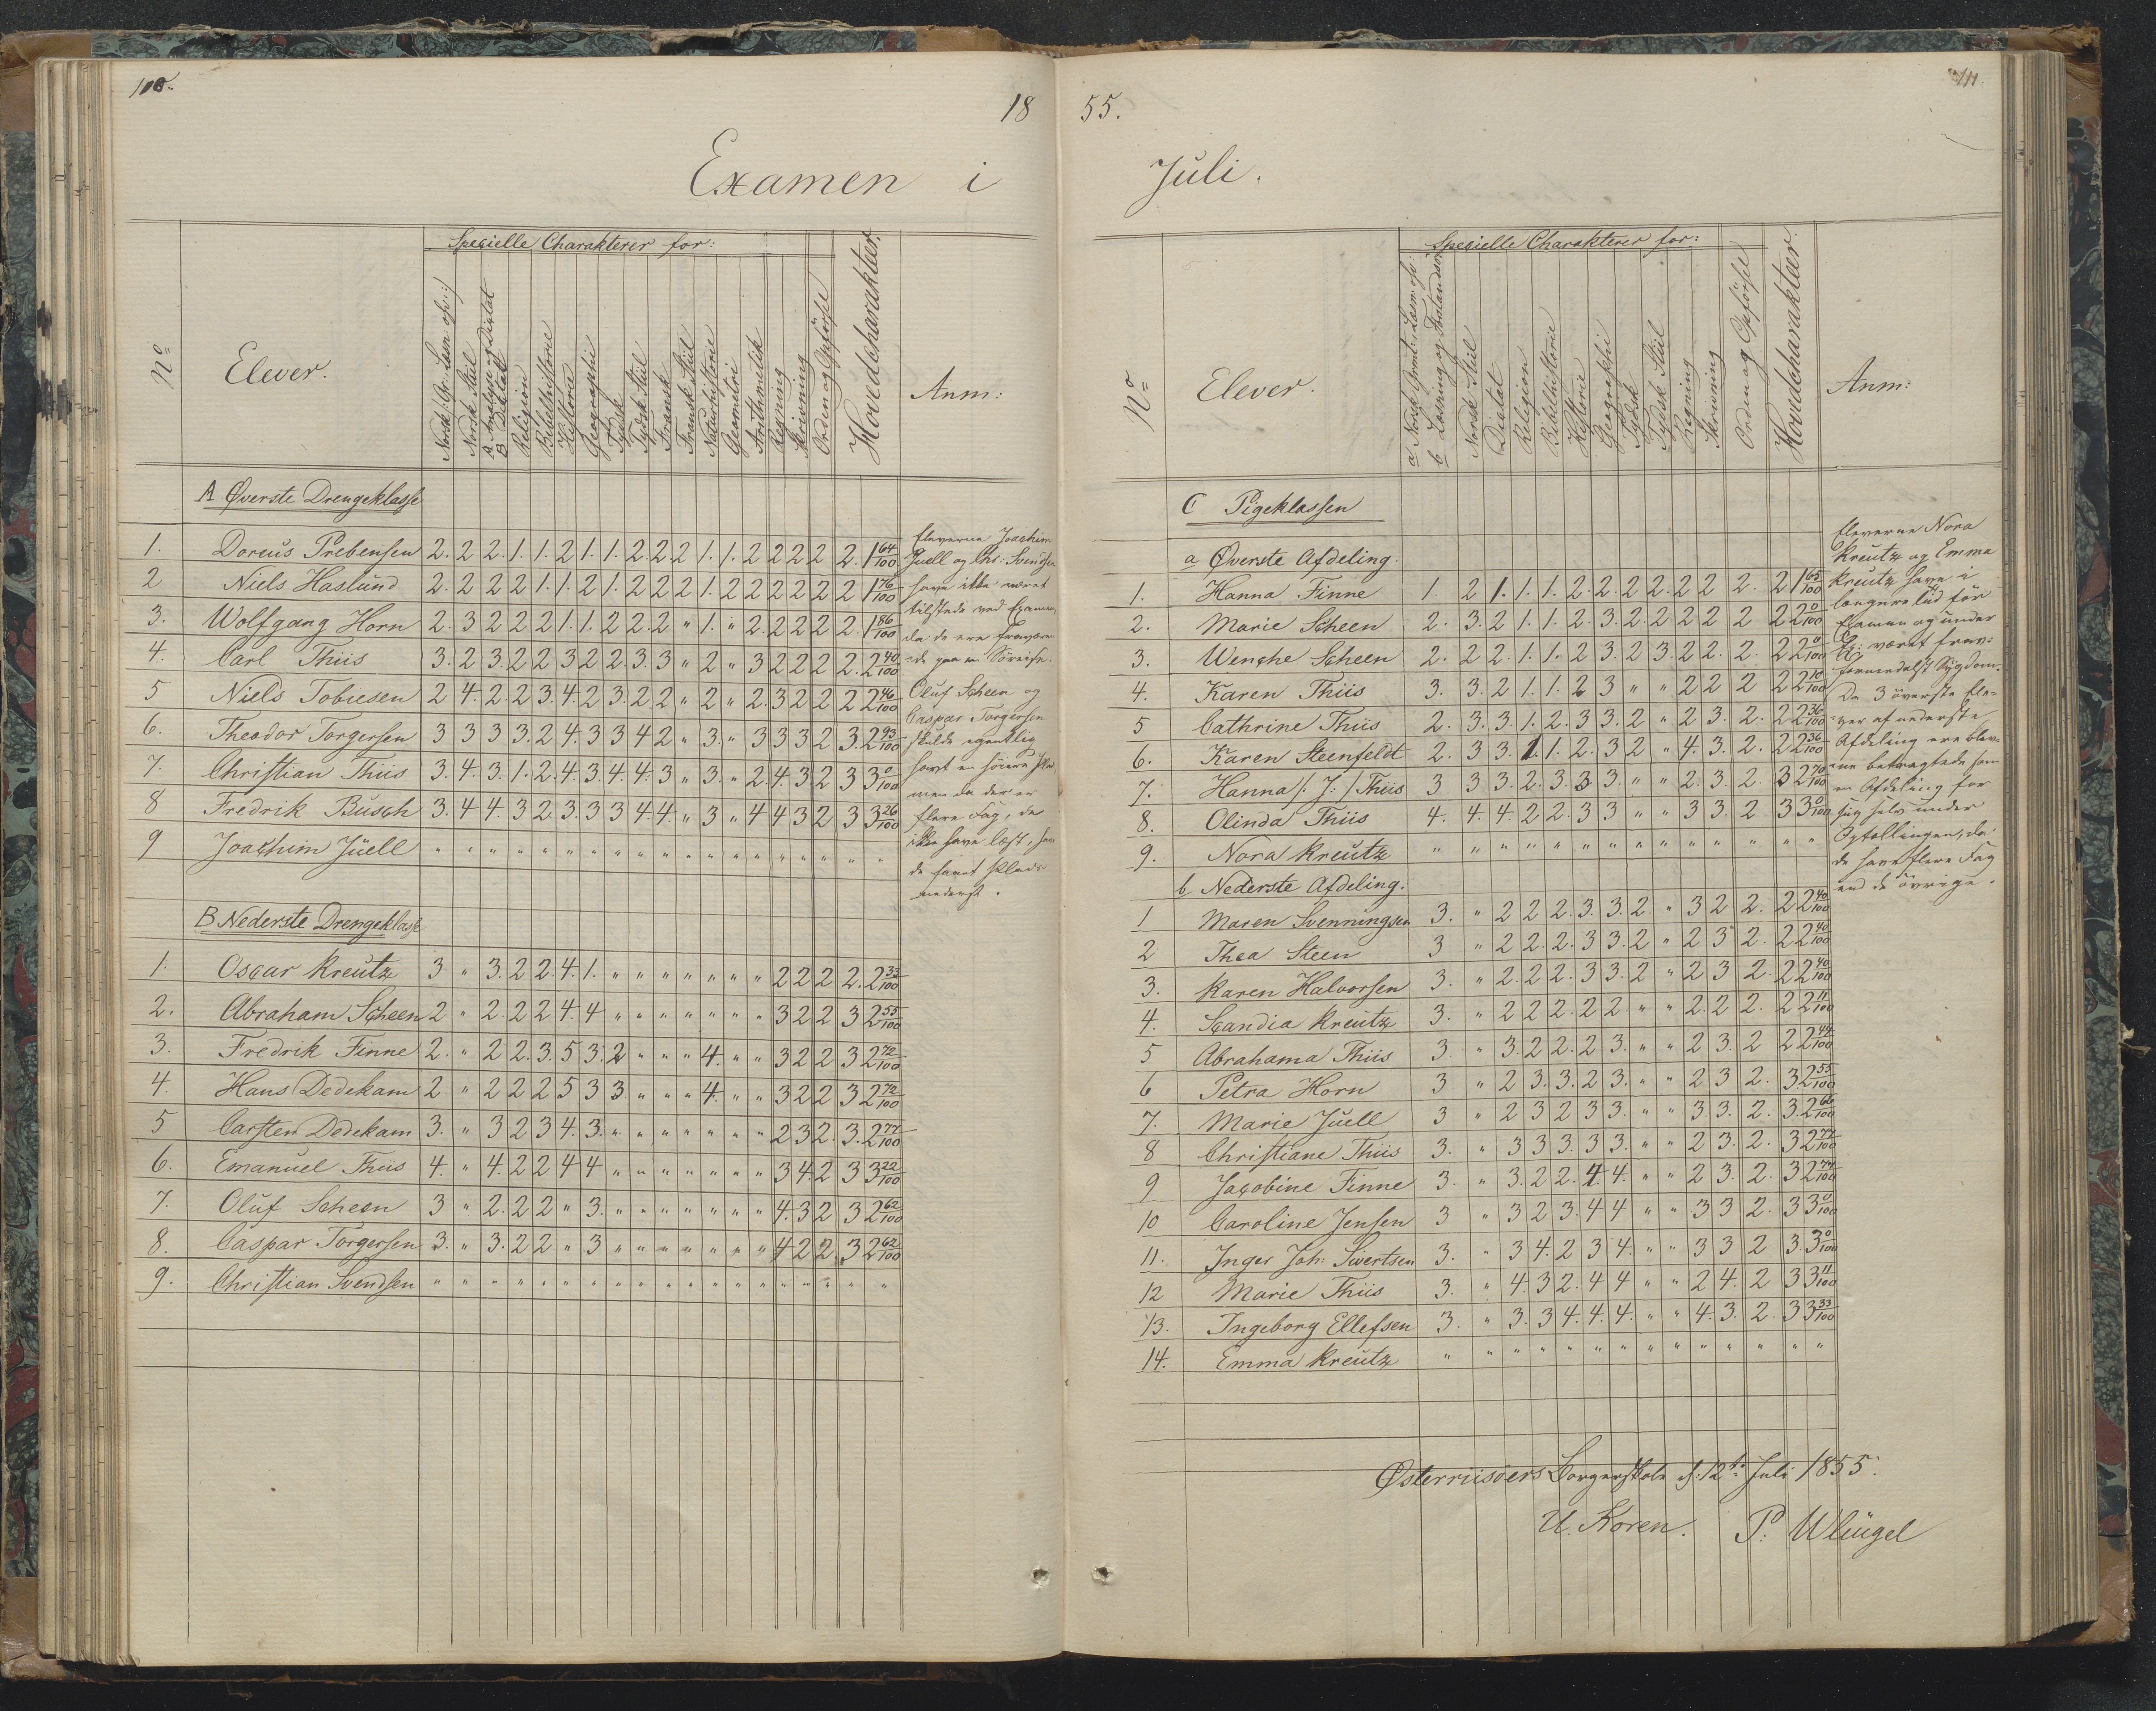 110.
18
Examen i
Specielle Charakterer for:
No
Elever.
Norsk Gr: Læsn. opv:
Norsk Stiil
A Analyse og Dictat
B Dictat
Religion
Bibelhistorie
Historie
Geographi
Tydsk
Tydsk Stiil
Fransk
Fransk Stiil
Naturhistorie
Geometrie
Arithmetik
Regning
Skrivning
Orden og Opförsel
Hovedcharakteer.
Anm:
A Øverste Drengeklasse
1. Doreus Prebensen 2. 2 2. 1. 1. 2 1. 1. 2. 2. 2 1. 1. 2 2 2 2 2. 1 64/100
2 Niels Haslund 2. 2 2 2 1. 1. 2 1. 2 2 2 1. 2 2 2 2 2 2 1 76/100
3. Wolfgang Horn 2. 3 2 2 2 1. 1. 2 2. 2 " 1. " 2. 2 2 2 2. 1 86/100
4. Carl Thiis 3. 2 3. 2 2 3 2 2. 3. 3 " 2 " 3 2 2 2 2. 2 40/100
5 Niels Tobiesen 2 4. 2. 2 3. 4. 2 3. 2 2 " 2 " 2. 3 2 2 2 2 46/100
6. Theodor Torgersen 3 3 3 3. 2 4. 3 3 4 2 " 3. " 3 3 3 2 3. 2 93/100
7. Christian Thiis 3. 4. 3. 1. 2. 4. 3. 4. 4. 3 " 3. " 2. 4. 3 2 3 3 0/100
8 Fredrik Busch 3. 4 4. 3 2. 3. 3 3 4. 4. " 3 " 4 4 3 2 3 3 26/100
9 Joachim Juell " " " " " " " " " " " " " " " " " " "
Eleverne Joachim
Juell og Chr. Svendsen
have ikke været
tilstede ved Examen,
da de ere fraværen-
de paa en Söreise.
Oluf Scheen og
Caspar Torgersen
skulde egentlig
havt en höiere Plads,
men da der er
flere Fag, de
ikke have læst, have
de faaet Plads
nederst.
B Nederste Drengeklasse
1. Oscar Kreutz 3 " 3. 2 2. 4. 1. " " " " " " " 2 2 2 2. 2 33/100
2. Abraham Scheen 2 " 2. 2 2 4. 4 " " " " " " " 3 2 2 3 2 55/100
3. Fredrik Finne 2. " 2 2. 3. 5 3. 2 " " " 4. " " 3 2 2 3 2 72/100
4. Hans Dedekam 2 " 2 2 2 5 3 3 " " " 4. " " 3 2 2 3 2 72/100
5 Carsten Dedekam 3. " 3 2 3 4. 3. " " " " " " " 2 3 2. 3. 2 77/100
6. Emanuel Thiis 4. " 4. 2 2 4 4 " " " " " " " 3 4. 2 3 3 22/100
7. Oluf Scheen 3 " 2. 2 2 " 3. " " " " " " " 4. 3 2 3 2 62/100
8. Caspar Torgersen 3. " 3. 2 2 " 3 " " " " " " " 4 2 2 3 2 62/100
9. Christian Svendsen " " " " " " " " " " " " " " " " " " "
111.
55.
Juli.
Specielle Charakterer for:
No
Elever.
a Norsk Gram: Læsn: opv.
b Læsning og Forstandsöv
Norsk Stiil
Dictat
Religion
Bibelhistorie
Historie
Geographi
Tydsk
Tydsk Stiil
Regning
Skrivning
Orden og Opförsel
Hovedcharakteer.
Anm:
C Pigeklassen
a Øverste Afdeling.
1. Hanna Finne 1. 2 1. 1. 1. 2. 2. 2 2. 2 2 2. 2 1 65/100
2. Marie Scheen 2. 3. 2 1. 1. 2. 3. 2. 2 2 2 2 2 2 0/100
3. Wenche Scheen 2. 2 2. 1. 1. 2 3. 2 3. 2 2. 2. 2 2 0/100
4. Karen Thiis 3. 3. 2 1. 1. 2 3 " " 2 2 2 2 2 10/100
5 Cathrine Thiis 2. 3. 3. 1. 2. 3 3. 2 " 2 3. 2. 2 2 36/100
6. Karen Steenfeldt 2. 3 3. 1. 1. 2. 3 2 " 4. 3. 2. 2 2 36/100
7. Hanna /: J: / Thiis 3 3 3. 2. 3. 3 3. " " 2. 3. 2. 3 2 70/100
8. Olinda Thiis 4. 4. 4. 2 2. 3 3 " " 3 3. 2 3 3 0/100
9. Nora Kreutz " " " " " " " " " " " " " "
b Nederste Afdeling.
1 Maren Svenningsen 3. " 2 2 2. 3. 3. 2. " 3 2 2. 2 2 40/100
2 Thea Steen 3 " 2 2. 2. 3 3. 2 " 2 3 2. 2 2 40/100
3. Karen Halvorsen 3. " 2. 2 2. 3 3. 2 " 2 3 2. 2 2 40/100
4. Scandia Kreutz 3. " 2 2 2. 2 2 " " 2. 2. 2. 2 2 11/100
5 Abrahama Thiis 3. " 3. 2 2. 2 3. " " 2 3. 2 2 2 44/100
6 Petra Horn 3 " 2 3. 3. 2 3. " " 2 3 2. 3. 2 55/100
7. Marie Juell 3 " 2 3 2 3 3. " " 3. 3. 2. 3. 2 66/100
8 Christiane Thiis 3. " 3 3 3. 3 3. " " 2 3. 2. 3 2 77/100
9 Jacobine Finne 3. " 3. 2 2. 4. 4. " " 2 3. 2. 3 2 77/100
10 Caroline Jensen 3 " 3 2 3. 4 4 " " 3 3 2. 3 3 0/100
11. Inger Joh: Sivertsen 3. " 3 4. 2 3 4. " " 3 3 2 3. 3 0/100
12 Marie Thiis 3. " 4. 3 2. 4 4 " " 2 4. 2 3 3 11/100
13. Ingeborg Ellefsen 3. " 3. 3 4. 4. 4. " " 4. 3. 2. 3 3 33/100
14. Emma Kreutz " " " " " " " " " " " " " "
Eleverne Nora
Kreutz og Emma
Kreutz have i
længere Tid för
Examen og under
Ex: været frav:
formedelst Sygdom.
De 3 överste Ele-
ver af nederste
Afdeling ere blev-
ne betragtede som
en Afdeling for
sig selv under
Opstillingen, da
de have flere Fag
end de övrige.
Østerriisöers Borgerskole d: 12te Juli 1855.
U. Koren. P. Wleügel